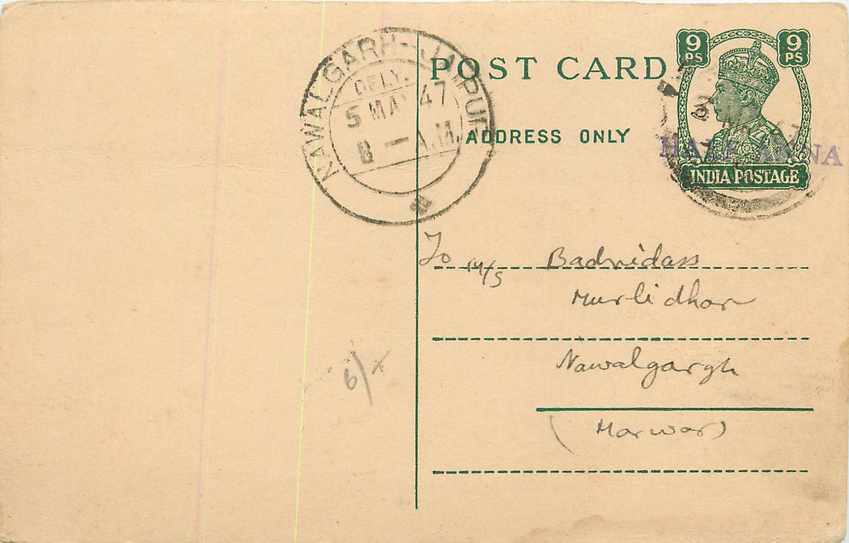 NAWALGARH-JAIPUR
DELY.
5 MAY 47
8 — A.M.
POST CARD
ADDRESS ONLY
9 PS 9 PS
HALF ANNA
INDIA POSTAGE
To M/s Badridass
Murlidhar
Nawalgargh
(Marwar)
6/x